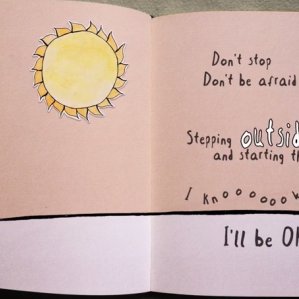 Don't stop
Don't be afraid
Stepping outsid
and starting th
I knoooooow
I'll be